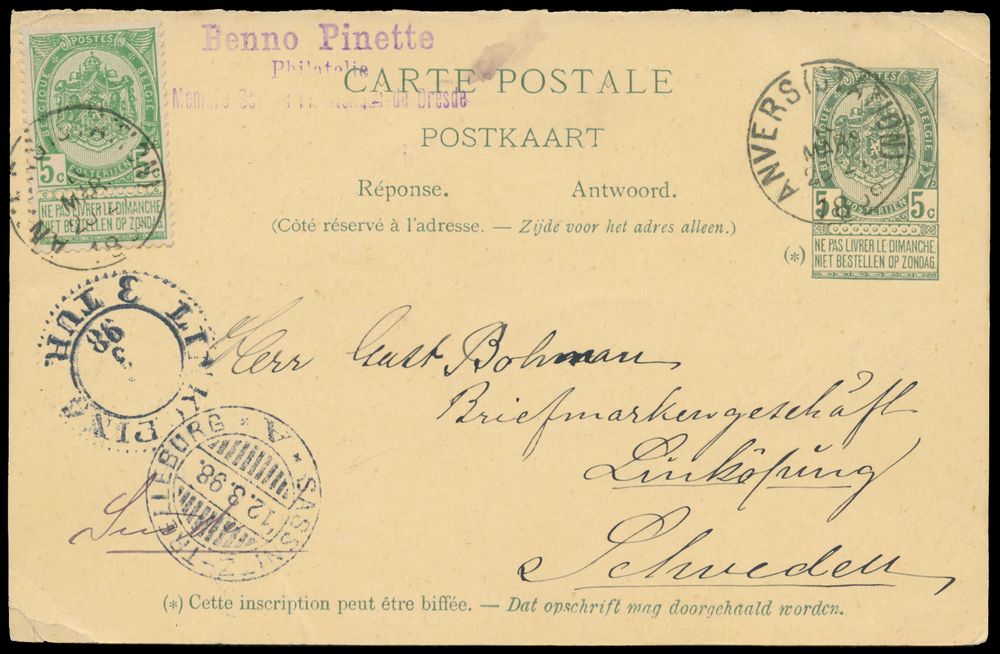 Benno Pinette
Philatelie
de Dresde
CARTE POSTALE
POSTKAART
Réponse. Antwoord.
(Côté réservé à l'adresse. — Zijde voor het adres alleen.)
POSTES
BELGIQUE BELGIË
5c
POSTERIJEN
NE PAS LIVRER LE DIMANCHE.
NIET BESTELLEN OP ZONDAG.
ANVERS
MAR
POSTES
BELGIQUE BELGIË
5 5c
POSTERIJEN
(*) NE PAS LIVRER LE DIMANCHE.
NIET BESTELLEN OP ZONDAG.
ANVERS (STATION)
MAR
98
3 TUR
98
Herr Gust Bohman
Briefmarkengeschäft
Linköping
Schweden
SASSNITZ-TRELLEBORG * A *
12.3.98.
(*) Cette inscription peut être biffée. — Dat opschrift mag doorgehaald worden.